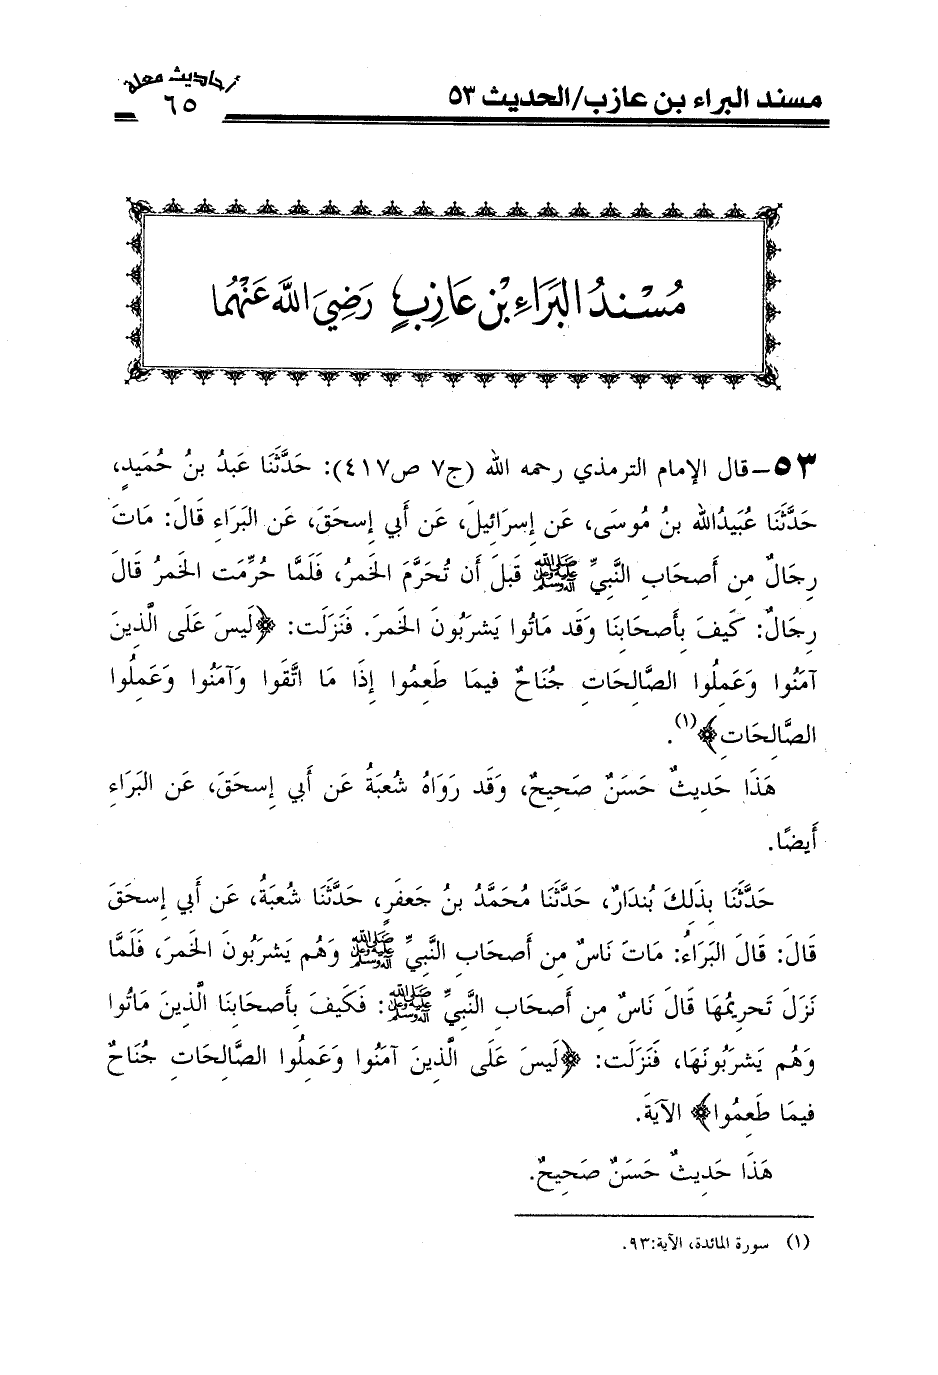 مسند البراء بن عازب/الحديث ٥٣
أحاديث معلة
٦٥
مُسْنَدُ البَرَاءِ بْنِ عَازِبٍ رَضِيَ اللَّهُ عَنْهُمَا
٥٣ – قال الإمام الترمذي رحمه الله (ج٧ ص٤١٧): حَدَّثَنَا عَبدُ بنُ حُمَيدٍ،
حَدَّثَنَا عُبَيدُالله بنُ مُوسَى، عَن إِسرَائِيلَ، عَن أَبي إِسحَقَ، عَن البَرَاءِ قَالَ: مَاتَ
رِجَالٌ مِن أَصحَابِ النَّبِيِّ ﷺ قَبلَ أَن تُحَرَّمَ الخَمرُ، فَلَمَّا حُرِّمَت الخَمرُ قَالَ
رِجَالٌ: كَيفَ بِأَصحَابِنَا وَقَد مَاتُوا يَشرَبُونَ الخَمرَ. فَنَزَلَت: ﴿لَيسَ عَلَى الَّذِينَ
آمَنُوا وَعَمِلُوا الصَّالِحَاتِ جُنَاحٌ فِيمَا طَعِمُوا إِذَا مَا اتَّقَوا وَآمَنُوا وَعَمِلُوا
الصَّالِحَاتِ﴾(١).
هَذَا حَدِيثٌ حَسَنٌ صَحِيحٌ، وَقَد رَوَاهُ شُعبَةُ عَن أَبي إِسحَقَ، عَن البَرَاءِ
أَيضًا.
حَدَّثَنَا بِذَلِكَ بُندَارٌ، حَدَّثَنَا مُحَمَّدُ بنُ جَعفَرٍ، حَدَّثَنَا شُعبَةُ، عَن أَبي إِسحَقَ
قَالَ: قَالَ البَرَاءُ: مَاتَ نَاسٌ مِن أَصحَابِ النَّبِيِّ ﷺ وَهُم يَشرَبُونَ الخَمرَ، فَلَمَّا
نَزَلَ تَحرِيمُهَا قَالَ نَاسٌ مِن أَصحَابِ النَّبِيِّ ﷺ: فَكَيفَ بِأَصحَابِنَا الَّذِينَ مَاتُوا
وَهُم يَشرَبُونَهَا، فَنَزَلَت: ﴿لَيسَ عَلَى الَّذِينَ آمَنُوا وَعَمِلُوا الصَّالِحَاتِ جُنَاحٌ
فِيمَا طَعِمُوا﴾ الآيَةَ.
هَذَا حَدِيثٌ حَسَنٌ صَحِيحٌ.
(١) سورة المائدة، الآية:٩٣.